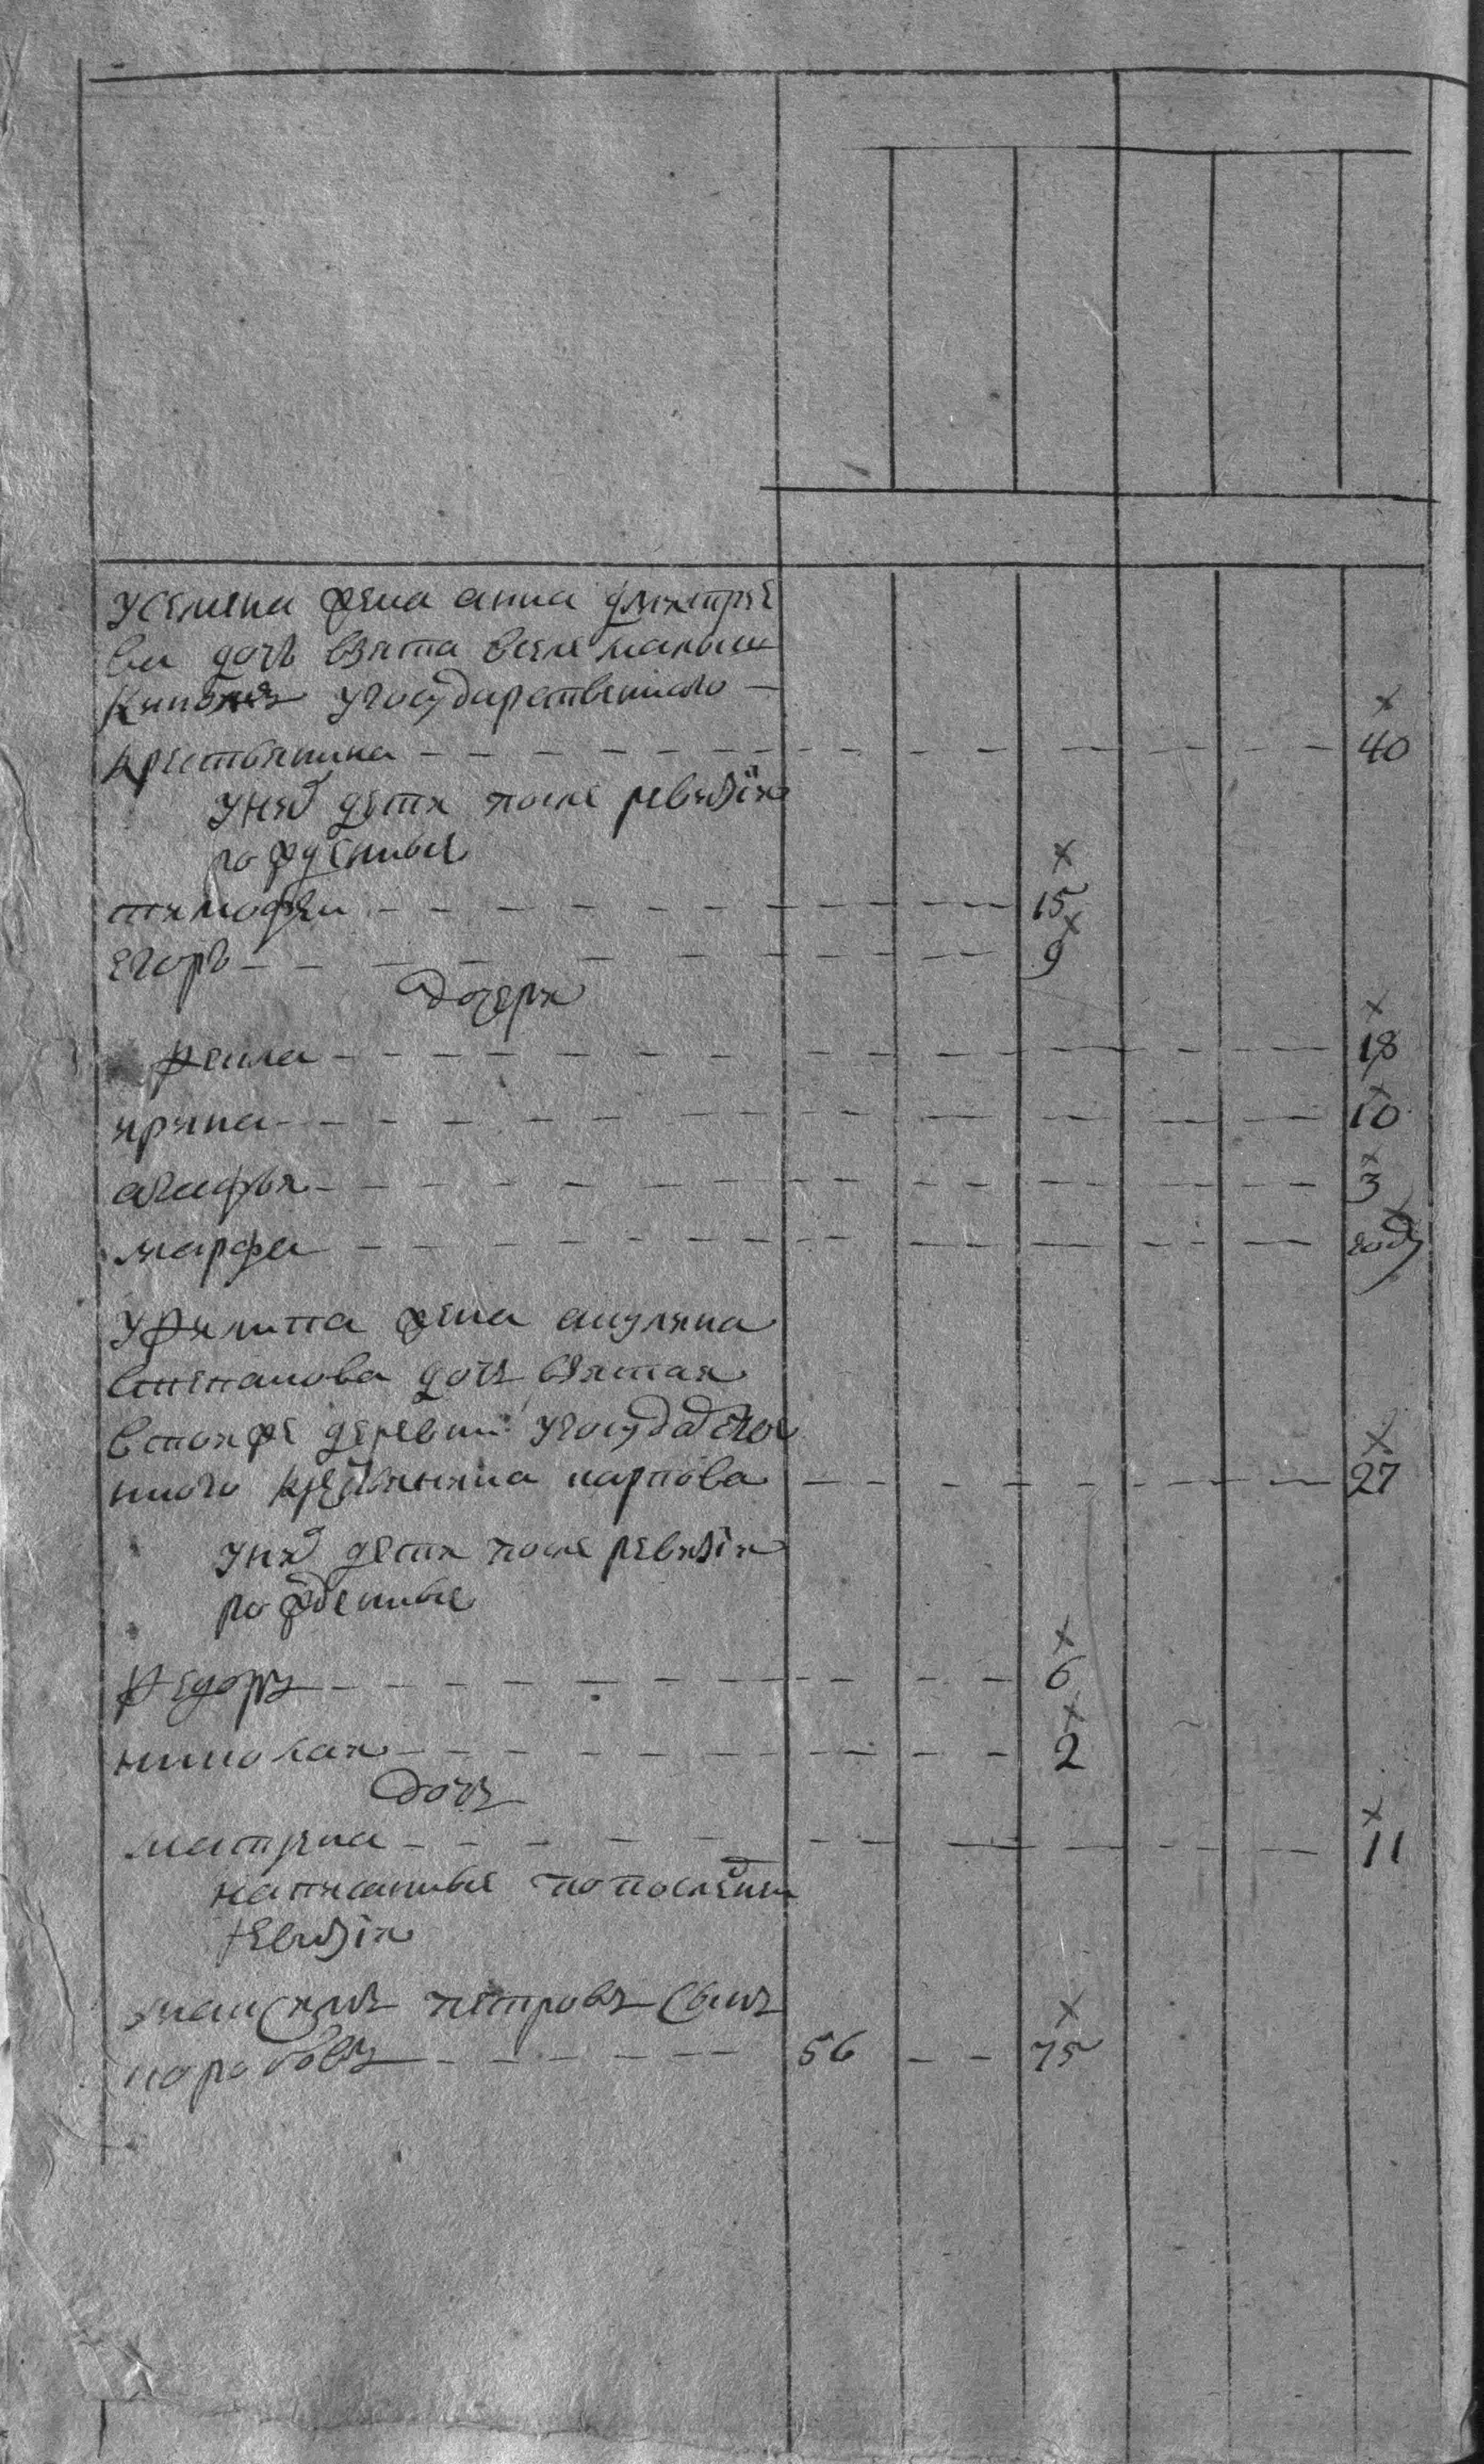 у семена жена анна дмитрие
ва дочь взята в селе малыш
у государственного
крестьянина 40
у них дети после ревизіи
рожденные
тимофеи 15
егоръ 9
дочери
фекла 18
ирина 10
агафья 3
марфа годъ
у филипа жена акулина
степанова дочь взятая
в тои же деревни у государстве
нного крестьянина карпова 27
у них дети после ревизіи
рожденные
федоръ 6
николаи 2
дочь
матрена 11
написанные по последнеи
ревизіи
максимъ петровъ сынъ
56 75